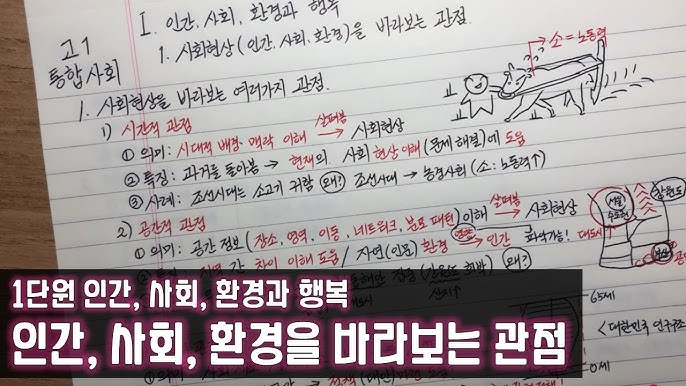 고1
통합사회
I. 인간, 사회, 환경과 행복
1. 사회현상(인간, 사회, 환경)을 바라보는 관점.
소 = 노동력
1. 사회현상을 바라보는 여러가지 관점.
1) 시간적 관점
① 의미: 시대적 배경·맥락 이해 살펴봄 → 사회현상
② 특징: 과거를 돌아봄 → 현재의 사회현상 이해(문제 해결)에 도움
③ 사례: 조선시대는 소고기 귀함 왜? 조선시대 → 농경사회 (소: 노동력↑)
2) 공간적 관점
① 의미: 공간 정보(장소, 영역, 이동, 네트워크, 분포 패턴) 이해 살펴봄 → 사회현상
차이 이해 도움 / 자연(인문) 환경 → 인간
왜?
서울
수도권
강원도
부산
65세
<대한민국 인구구조
0세
1단원 인간, 사회, 환경과 행복
인간, 사회, 환경을 바라보는 관점